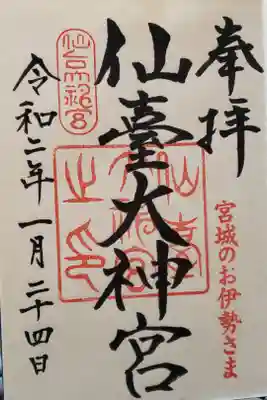 奉拝
宮城のお伊勢さま
仙臺大神宮
令和二年一月二十四日